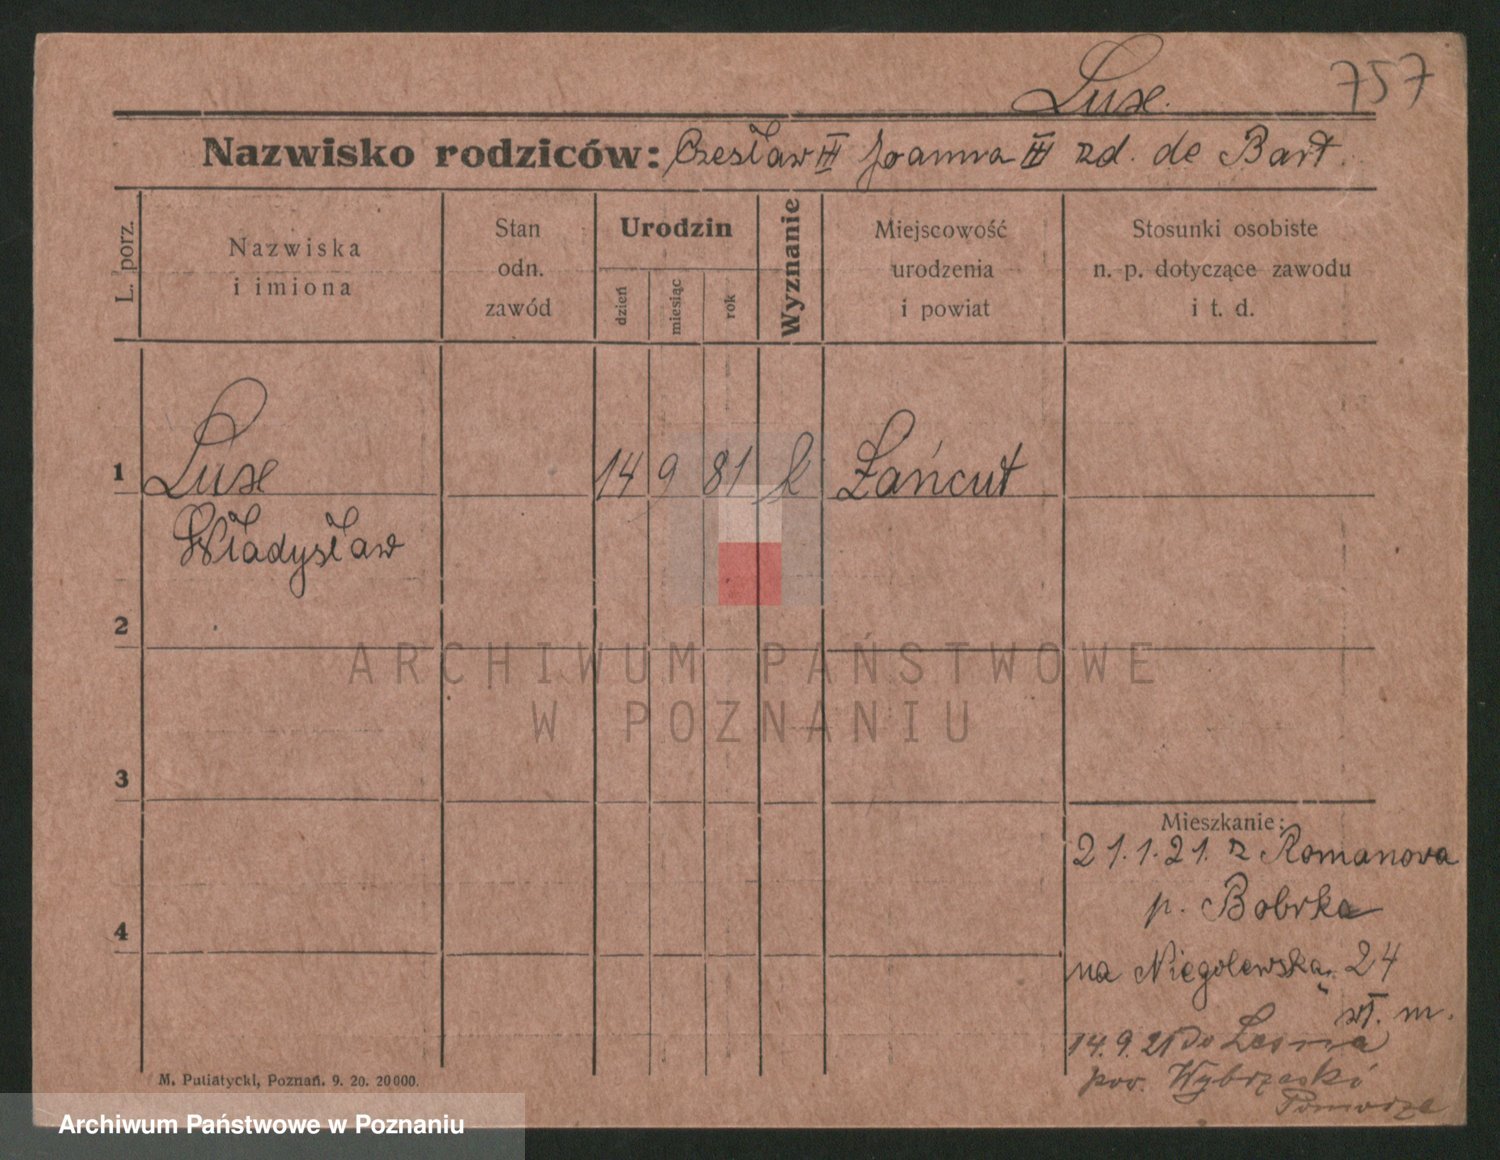 Luxe. 757
Nazwisko rodziców: Czesław III Joanna III zd. de Bart.
L. porz.
Nazwiska
i imiona
Stan
odn.
zawód
Urodzin
dzień
miesiąc
rok
Wyznanie
Miejscowość
urodzenia
i powiat
Stosunki osobiste
n. p. dotyczące zawodu
i t. d.
1 Luxe 14 9 81 k Łańcut
Władysław
2
ARCHIWUM PAŃSTWOWE
W POZNANIU
3
Mieszkanie:
21.1.21. z Romanova
p. Bobrka
4
na Niegolewską 24
wł. m.
14.9.21 do Leśna
pow. Wybrzeski
Pomorze
M. Putiatycki, Poznań. 9. 20. 20000.
Archiwum Państwowe w Poznaniu